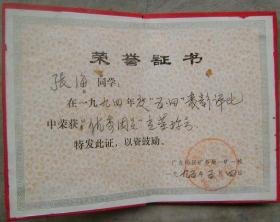 荣誉证书
张海同学:
在一九九四年度"五·四"表彰评比
中荣获"优秀团员"光荣称号
特发此证,以资鼓励。
一九九五年五月四日